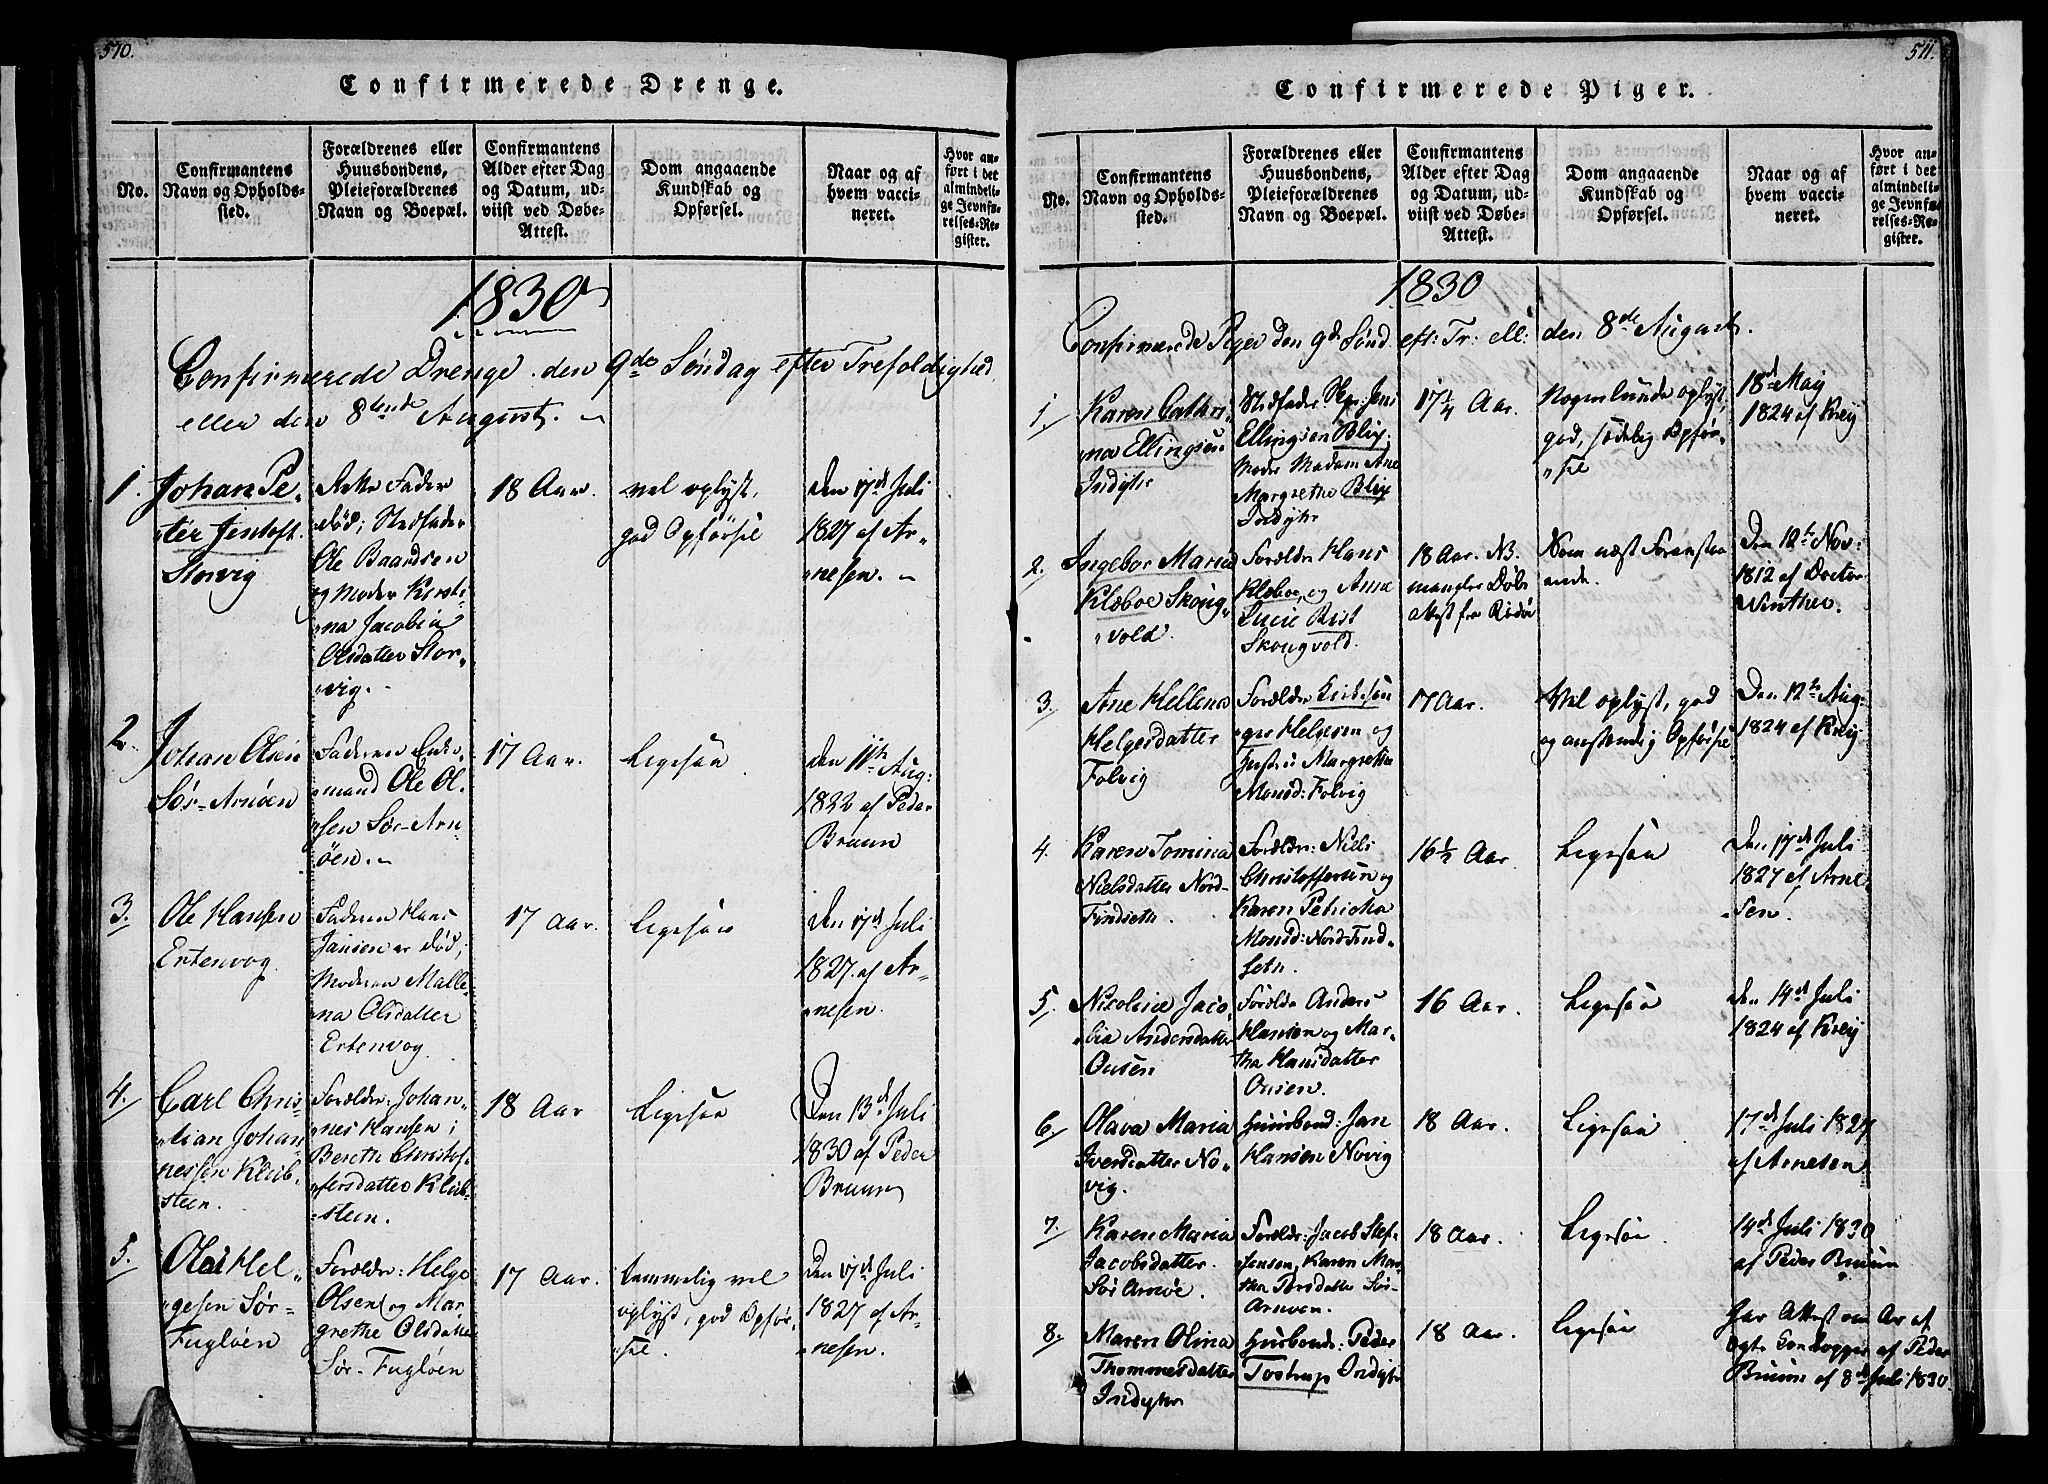 570.
Confirmerede Drenge.
No.
Confirmantens
Navn og Opholds-
sted.
Forældrenes eller
Huusbondens,
Pleieforældrenes
Navn og Boepæl.
Confirmantens
Alder efter Dag
og Datum, ud-
viist ved Døbe-
Attest.
Dom angaaende
Kundskab og
Opførsel.
Naar og af
hvem vacci-
neret.
Hvor an-
ført i det
almindeli-
ge Jevnfø-
relses-Re-
gister.
1830
Confirmerede Drenge den 9de Søndag efter Trefoldighed
eller den 8tende August.
1.
Johan Pe-
ter Jentoft
Storvig
Rette Fader
død; Stedfader
Ole Baardsen
og Moder Kirsti-
na Jacobia
Olsdatter Stor-
vig.
18 Aar.
vel oplyst,
god Opførsel
Den 17de Juli
1827 af Ar-
nesen.
2.
Johan Olsen
Sør-Arnøen
Faderen Enke-
mand Ole Ol-
sen Sør-Arn
øen.
17 Aar.
Ligesaa
den 11te Aug:
1822 af Peder
Bruun
3.
Ole Hansen
Ertenvog
Faderen Hans
Jansen er død;
Moderen Malle-
na Olsdatter
Ertenvog.
17 Aar.
Ligesaa
Den 17de Juli
1827 af Ar-
nesen.
4.
Carl Chris-
tian Johan-
nessen Klub-
steen.
Forældre: Johan-
nes Hansen;
Bereth Christof-
fersdatter Klub-
steen.
18 Aar
Ligesaa
Den 13de Juli
1830 af Peder
Bruun
5.
Ole Hel-
gesen Sør-
Fugløen
Forældre: Helge
Olsen og Mar
grethe Olsdatter
Sør-Fugløen
17 Aar.
temmelig vel
oplyst, god Opfør-
sel.
Den 17de Juli
1827 af Ar-
nesen.
511.
Confirmerede Piger.
No.
Confirmantens
Navn og Opholds-
sted.
Forældrenes eller
Huusbondens,
Pleieforældrenes
Navn og Boepæl.
Confirmantens
Alder efter Dag
og Datum, ud-
viist ved Døbe-
Attest.
Dom angaaende
Kundskab og
Opførsel.
Naar og af
hvem vacci-
neret.
Hvor an-
ført i det
almindeli-
ge Jevnfø-
relses-Re-
gister.
1830
Confirmerede Piger den 9de Sønd. eft: Tr: ell: den 8de August.
1.
Karen Cathri-
na Ellingsen
Indyhr
Stedfader: Jens
Ellingsen Blix;
Moder Madam Ane
Margrethe Blix
Indyhr
17 1/4 Aar.
Nogenlunde oplyst,
god, sædelig Opfør-
sel
18de May
1824 af Kreij
2.
Ingebor Maria
Klæboe Skoug-
vold.
Forældre Hans
Klæboe, og Anne
Lucie Rist
Skougvold.
18 Aar. NB.
mangler Døbe
Attest fra Rødøe
Som næst Foranstaa
ende.
Den 12te Nov:
1812 af Doctor
Winther.
3.
Ane Hellena
Helgesdatter
Folvig
Forældre
Helgesen og
Hustru Margrethe
Monsd: Folvig
17 Aar.
Vel oplyst, god
og anstændig Opførsel
Den 12te Aug:
1824 af Kreij
4.
Karen Tomina
Nielsdatter Nord-
Findseth.
Forældre: Niels
Christoffersen og
Karen Petricka
Monsd: Nord Find-
seth.
16 1/2 Aar
Ligesaa
Den 17de Juli
1827 af Arne-
sen.
5.
Nicolina Jaco-
bia Andersdatter
Ousen
Forældre Anders
Hansen og Mar-
tha Hansdatter
Ousen.
16 Aar.
Ligesaa
Den 14de Juli
1824 af Kreij
6.
Olava Maria
Iversdatter No-
vig.
Huusbond: Jan
Hansen Novig
18 Aar.
Ligesaa
17de Juli 1827
af Arnesen
7.
Karen Maria
Jacobsdatter.
Sør Arnøe.
Forældre: Jacob Stef-
fensen, Karen Mar-
tha Pedersdatter Sør-
Arnøen.
18 Aar.
Ligesaa
14de Juli 1830
af Peder Bruun
8.
Maren Olina
Thommesdatter
Indyhr
Husbonde: Peder
Tostrup Indyhr
18 Aar.
Ligesaa
har Attest om Ar af
ægte Koekopper af Peder
Bruun af 8de Juli 1830.